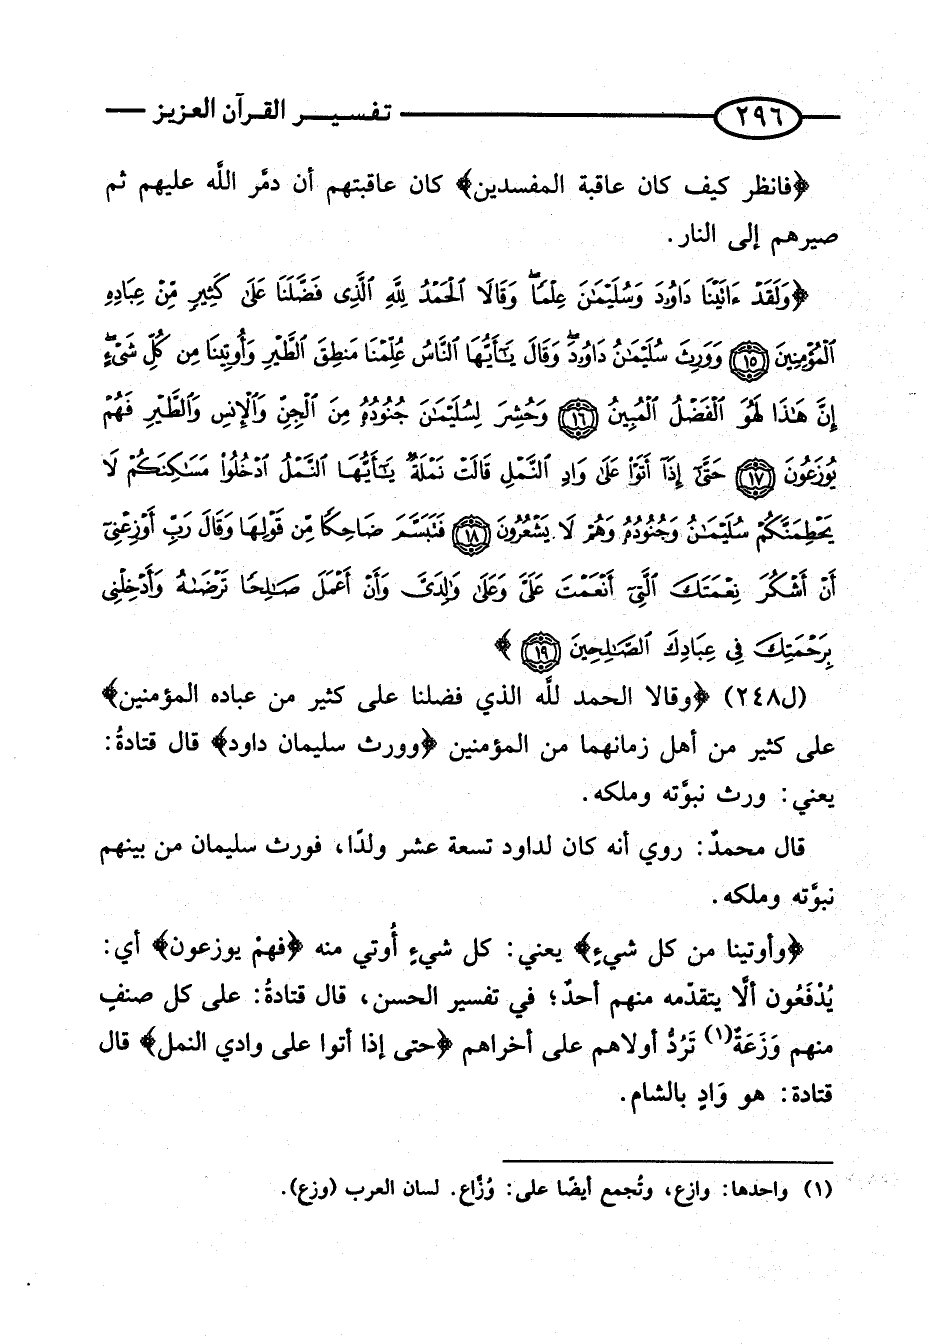 ٢٩٦ تفسير القرآن العزيز
﴿فانظر كيف كان عاقبة المفسدين﴾ كان عاقبتهم أن دمَّر اللَّه عليهم ثم
صيرهم إلى النار.
﴿وَلَقَدْ ءَاتَيْنَا دَاوُۥدَ وَسُلَيْمَـٰنَ عِلْمًاۖ وَقَالَا ٱلْحَمْدُ لِلَّهِ ٱلَّذِى فَضَّلَنَا عَلَىٰ كَثِيرٍ مِّنْ عِبَادِهِ
ٱلْمُؤْمِنِينَ ﴿١٥﴾ وَوَرِثَ سُلَيْمَـٰنُ دَاوُۥدَۖ وَقَالَ يَـٰٓأَيُّهَا ٱلنَّاسُ عُلِّمْنَا مَنطِقَ ٱلطَّيْرِ وَأُوتِينَا مِن كُلِّ شَىْءٍۖ
إِنَّ هَـٰذَا لَهُوَ ٱلْفَضْلُ ٱلْمُبِينُ ﴿١٦﴾ وَحُشِرَ لِسُلَيْمَـٰنَ جُنُودُهُۥ مِنَ ٱلْجِنِّ وَٱلْإِنسِ وَٱلطَّيْرِ فَهُمْ
يُوزَعُونَ ﴿١٧﴾ حَتَّىٰٓ إِذَآ أَتَوْا۟ عَلَىٰ وَادِ ٱلنَّمْلِ قَالَتْ نَمْلَةٌ يَـٰٓأَيُّهَا ٱلنَّمْلُ ٱدْخُلُوا۟ مَسَـٰكِنَكُمْ لَا
يَحْطِمَنَّكُمْ سُلَيْمَـٰنُ وَجُنُودُهُۥ وَهُمْ لَا يَشْعُرُونَ ﴿١٨﴾ فَتَبَسَّمَ ضَاحِكًا مِّن قَوْلِهَا وَقَالَ رَبِّ أَوْزِعْنِىٓ
أَنْ أَشْكُرَ نِعْمَتَكَ ٱلَّتِىٓ أَنْعَمْتَ عَلَىَّ وَعَلَىٰ وَٰلِدَىَّ وَأَنْ أَعْمَلَ صَـٰلِحًا تَرْضَىٰهُ وَأَدْخِلْنِى
بِرَحْمَتِكَ فِى عِبَادِكَ ٱلصَّـٰلِحِينَ ﴿١٩﴾ ﴾
(ل٢٤٨) ﴿وقالا الحمد للَّه الذي فضلنا على كثير من عباده المؤمنين﴾
على كثير من أهل زمانهما من المؤمنين ﴿وورث سليمان داود﴾ قال قتادةُ:
يعني: ورث نبوَّته وملكه.
قال محمدٌ: روي أنه كان لداود تسعة عشر ولدًا، فورث سليمان من بينهم
نبوَّته وملكه.
﴿وأوتينا من كل شيءٍ﴾ يعني: كل شيءٍ أُوتي منه ﴿فهمْ يوزعون﴾ أي:
يُدْفَعُون ألَّا يتقدّمه منهم أحدٌ؛ في تفسير الحسن، قال قتادةُ: على كل صنفٍ
منهم وَزَعَةٌ(١) تَرُدُّ أولاهم على أخراهم ﴿حتى إذا أتوا على وادي النمل﴾ قال
قتادة: هو وَادٍ بالشام.
(١) واحدها: وازع، وتُجمع أيضًا على: وُزَّاع. لسان العرب (وزع).